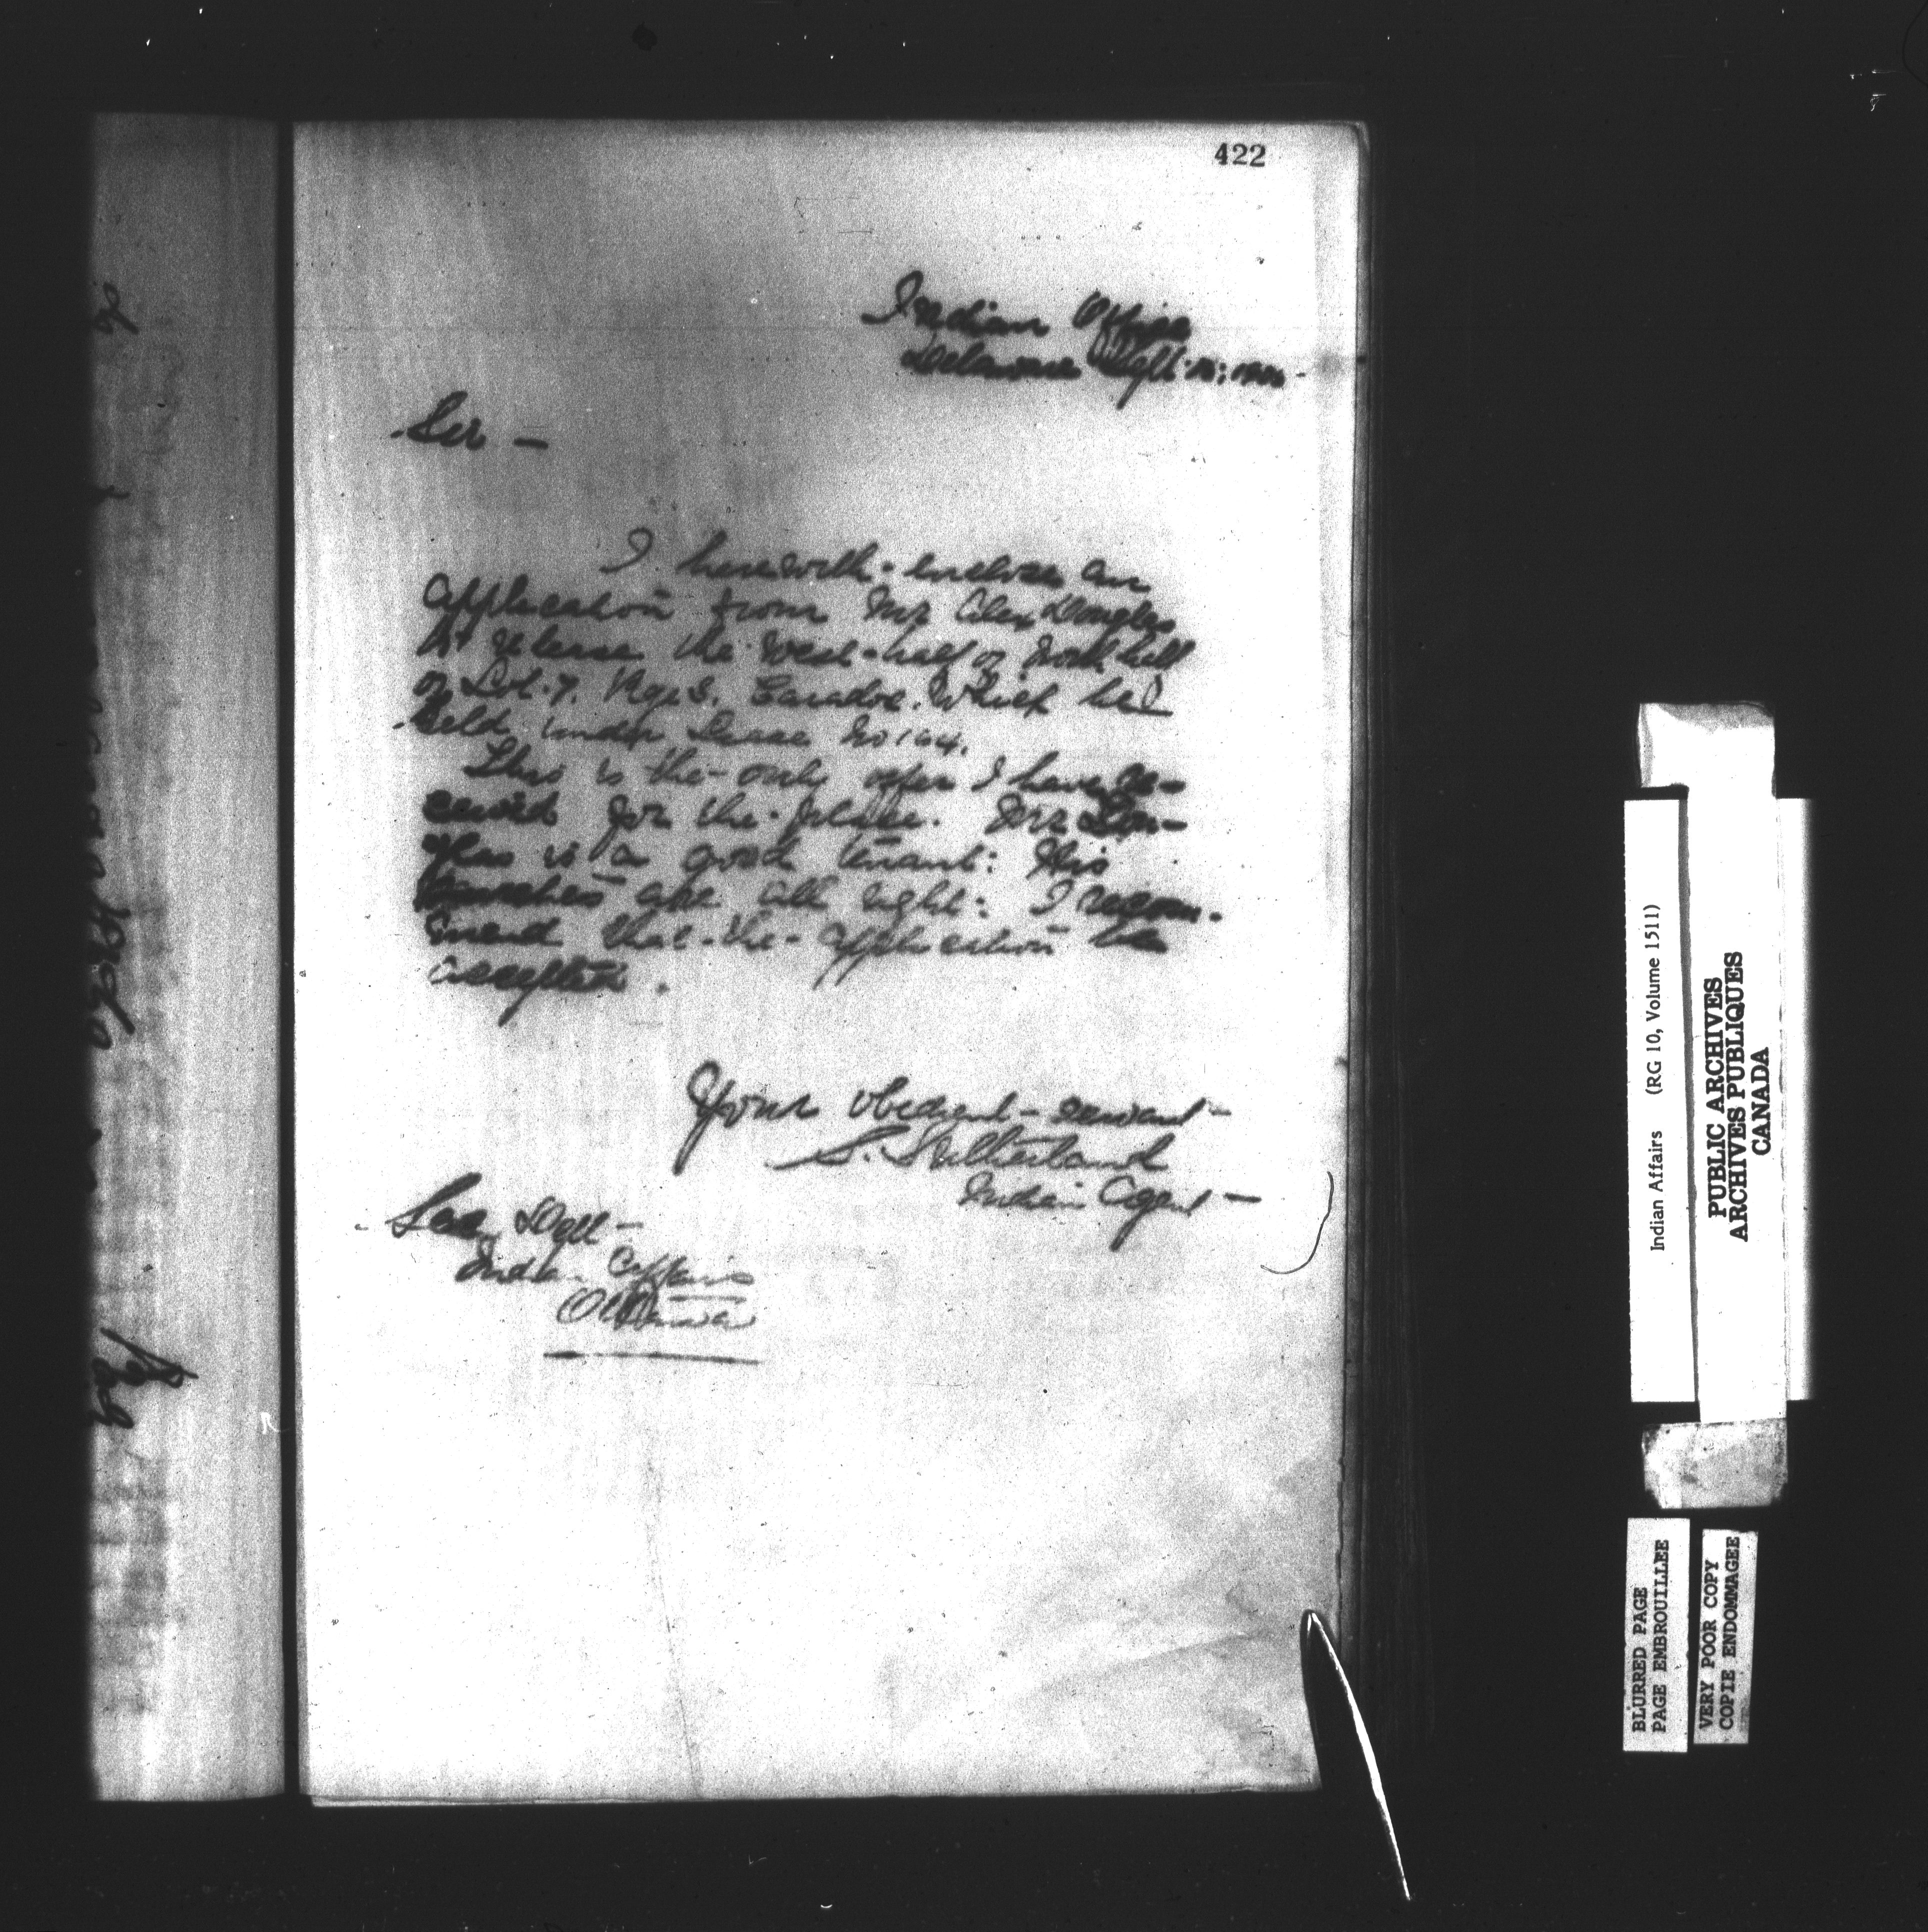 422
Indian Office
Delaware Sept. 1906
Sir —
I herewith enclose an
application from Mr Alex Douglas
to release the West-half of North half
of Lot. 7. Rge. 3. Caradoc. Which he
held under Lease No 144.
This is the only offer I have re-
ceived for the place. Mr Dou-
glas is a good tenant: His
are all right: I recom-
mend that the application be
accepted.
Your obedient servant
S. Sutherland
Indian Agent —
Secy Dept —
Indian Affairs
Ottawa
Indian Affairs (RG 10, Volume 1511)
PUBLIC ARCHIVES
ARCHIVES PUBLIQUES
CANADA
BLURRED PAGE
PAGE EMBROUILLEE
VERY POOR COPY
COPIE ENDOMMAGEE